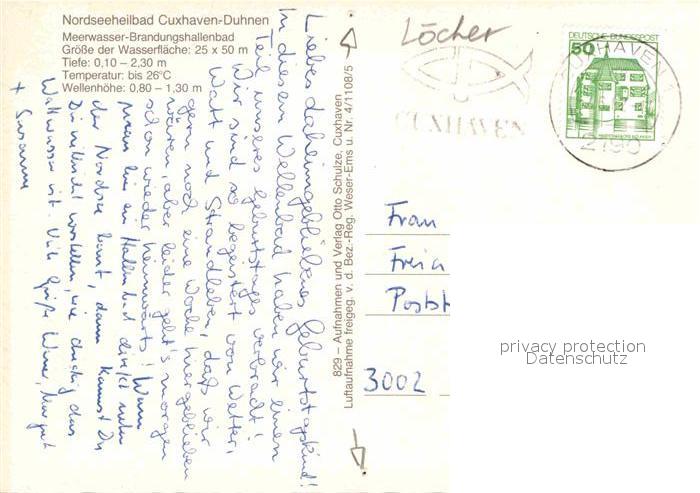 Nordseeheilbad Cuxhaven-Duhnen
Meerwasser-Brandungshallenbad
Größe der Wasserfläche: 25 x 50 m
Tiefe: 0,10 – 2,30 m
Temperatur: bis 26°C
Wellenhöhe: 0,80 – 1,30 m
Löcher
CUXHAVEN
DEUTSCHE BUNDESPOST
50
CUXHAVEN 1
2190
Liebes daheimgebliebenes Geburtstagskind!
In diesem Wellenbad haben wir einen
Teil unseres Geburtstages verbracht!
Wir sind so begeistert vom Wetter,
Watt und Strandleben, daß wir
gern noch eine Woche hiergeblieben
wären, aber leider geht's morgen
schon wieder heimwärts! Wenn
man hier ein Hallenbad direkt neben
der Nordsee baut, dann kannst Du
Dir vielleicht vorstellen, wie dreckig das
Wattwasser ist. Viele Grüße Werner, Margret
+ Susanne
829 – Aufnahmen und Verlag Otto Schulze, Cuxhaven
Luftaufnahme freigeg. v. d. Bez.-Reg. Weser-Ems u. Nr. 47/108/5
Frau
Postst
3002
privacy protection
Datenschutz